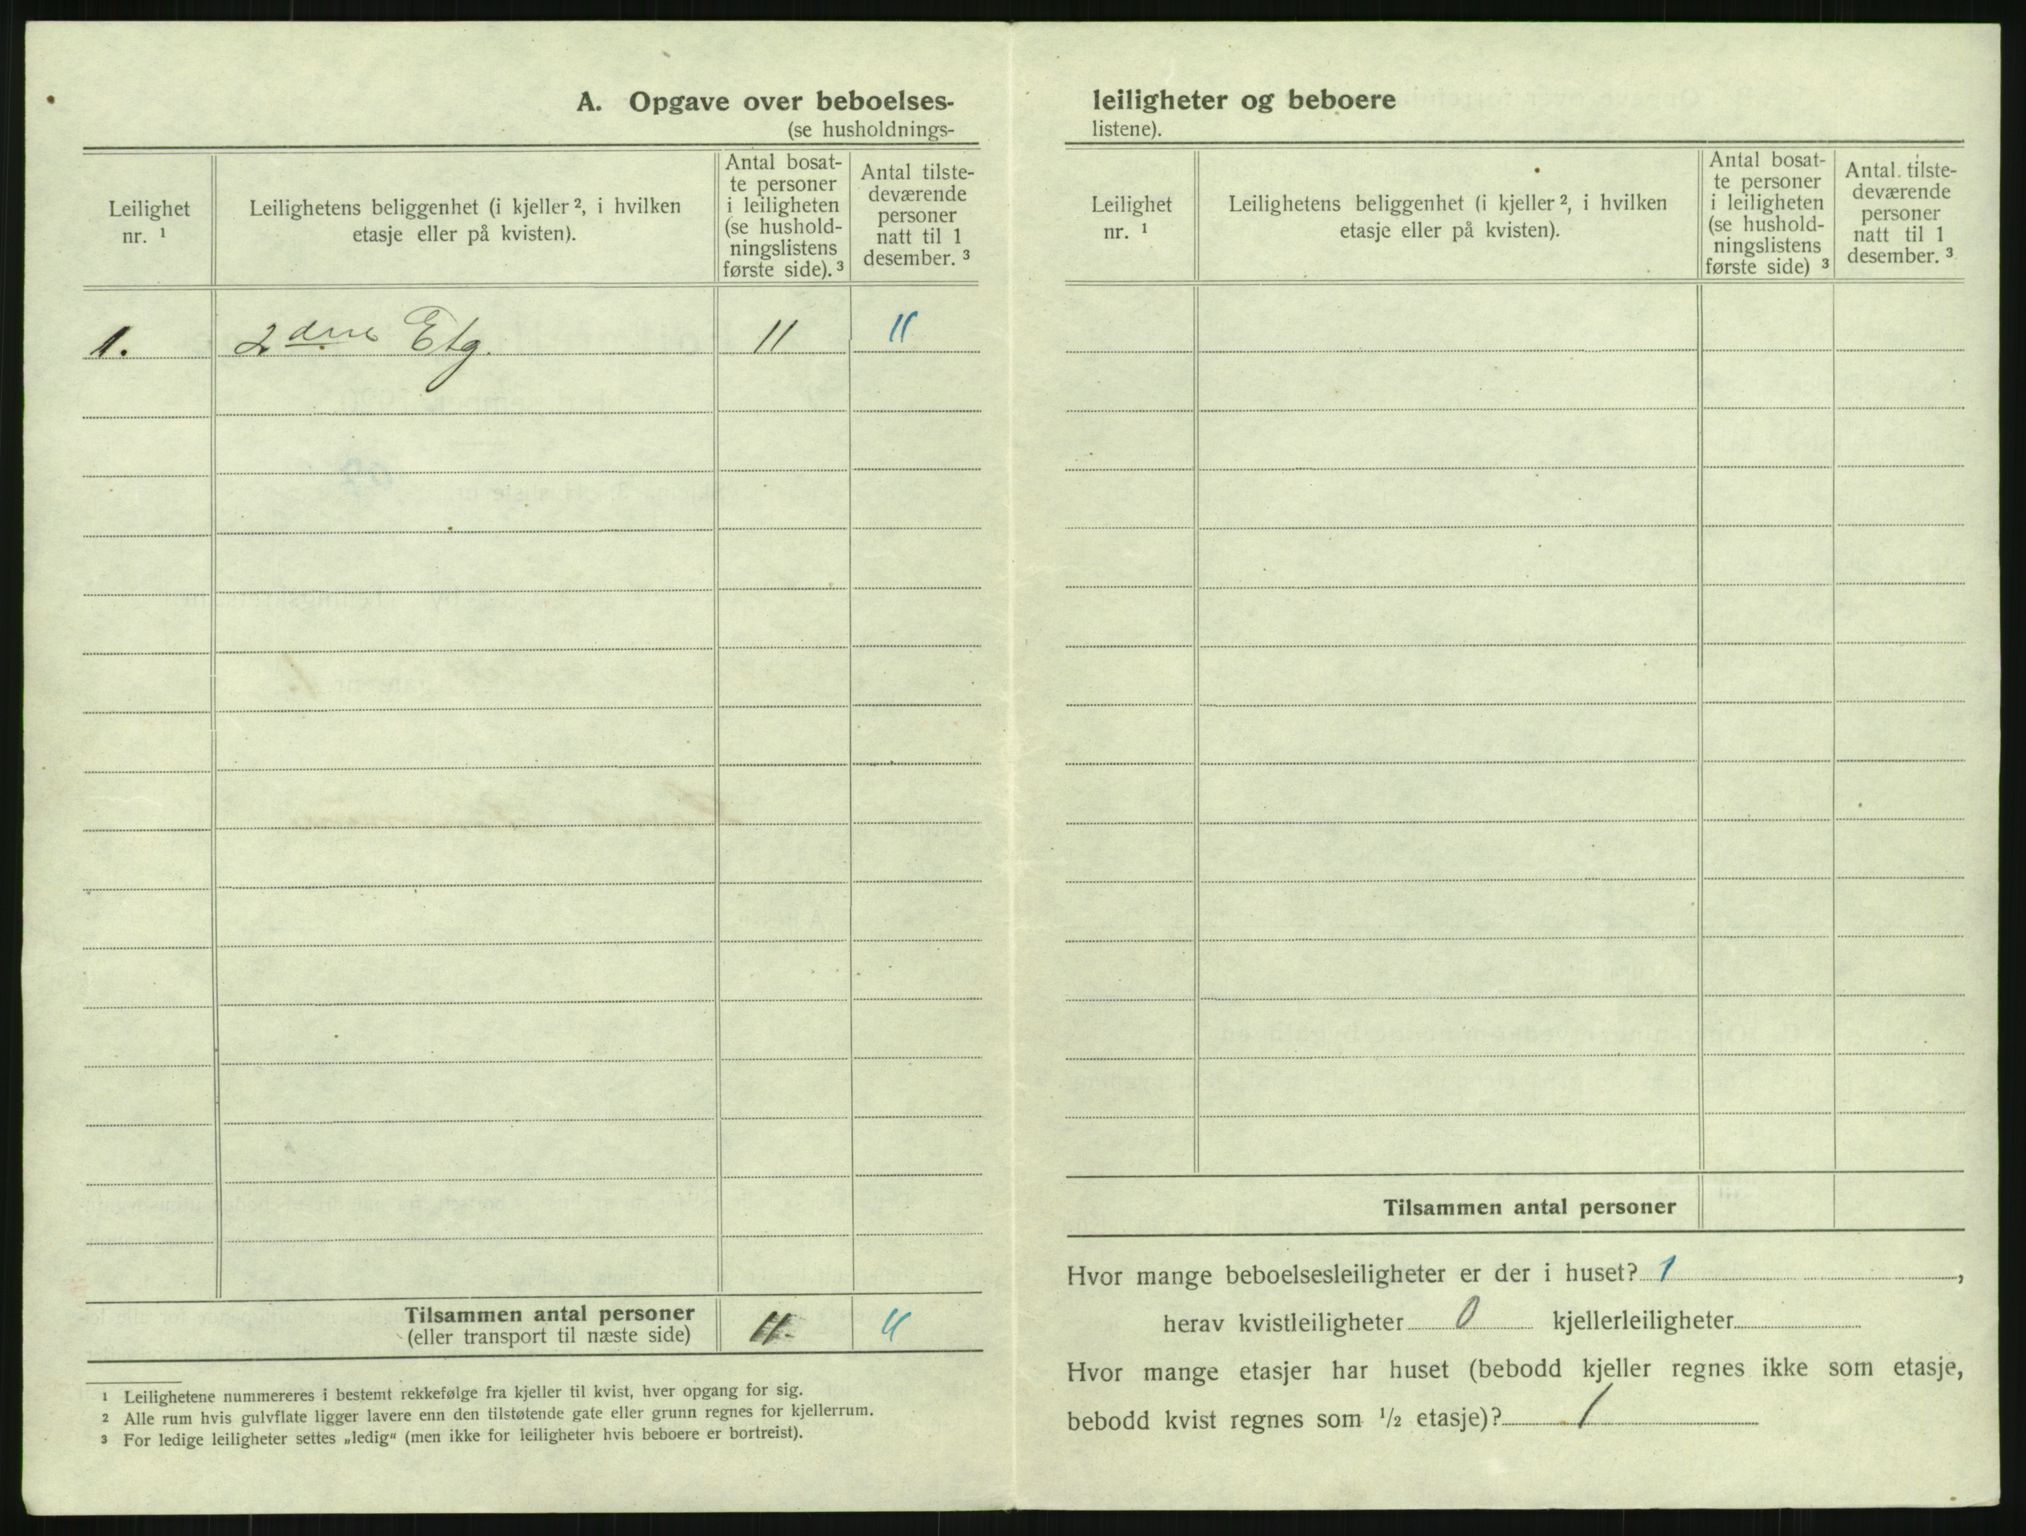 A. Opgave over beboelses-
(se husholdnings-
Leilighet
nr. ¹
Leilighetens beliggenhet (i kjeller ², i hvilken
etasje eller på kvisten).
Antal bosat-
te personer
i leiligheten
(se hushold-
ningslistens
første side). ³
Antal tilste-
deværende
personer
natt til 1
desember. ³
1. 2den Etg. 11 11
Tilsammen antal personer
(eller transport til næste side) 11 11
¹ Leilighetene nummereres i bestemt rekkefølge fra kjeller til kvist, hver opgang for sig.
² Alle rum hvis gulvflate ligger lavere enn den tilstøtende gate eller grunn regnes for kjellerrum.
³ For ledige leiligheter settes „ledig“ (men ikke for leiligheter hvis beboere er bortreist).
leiligheter og beboere
listene).
Leilighet
nr. ¹
Leilighetens beliggenhet (i kjeller ², i hvilken
etasje eller på kvisten).
Antal bosat-
te personer
i leiligheten
(se hushold-
ningslistens
første side) ³
Antal tilste-
deværende
personer
natt til 1
desember. ³
Tilsammen antal personer
Hvor mange beboelsesleiligheter er der i huset? 1 ,
herav kvistleiligheter 0 kjellerleiligheter
Hvor mange etasjer har huset (bebodd kjeller regnes ikke som etasje,
bebodd kvist regnes som ½ etasje)? 1